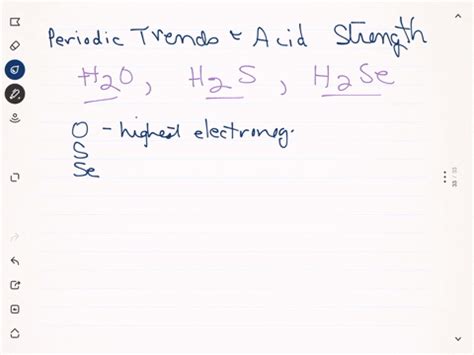 Periodic Trends & Acid Strength
H2O, H2S, H2Se
O - highest electroneg.
S
Se